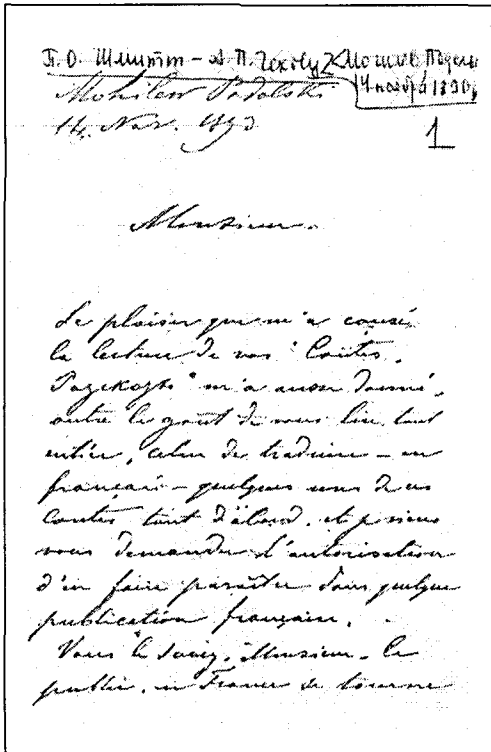 П. О. Шмитт – А. П. Чехову
Могилев Подольс
14 ноября 1890
Mohilew Podolski
14. Nov. 1890
1
Monsieur.
Le plaisir que m'a causé
la lecture de vos "Contes,
" m'a aussi donné,
outre le goût de vous lire tout
entier, celui de traduire – en
français – quelques uns de ces
contes tout d'abord, et je viens
vous demander l'autorisation
d'en faire paraître dans quelque
publication française.
Vous le savez, Monsieur, le
public, en France se tourne